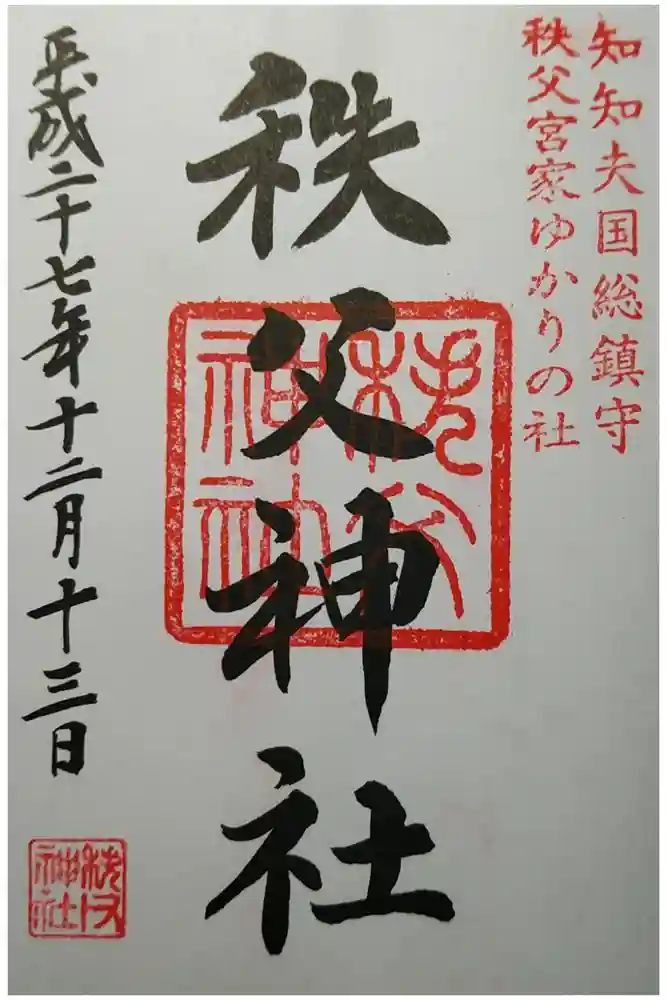 知知夫国総鎮守
秩父宮家ゆかりの社
秩父神社
秩父神社
平成二十七年十二月十三日
秩父神社